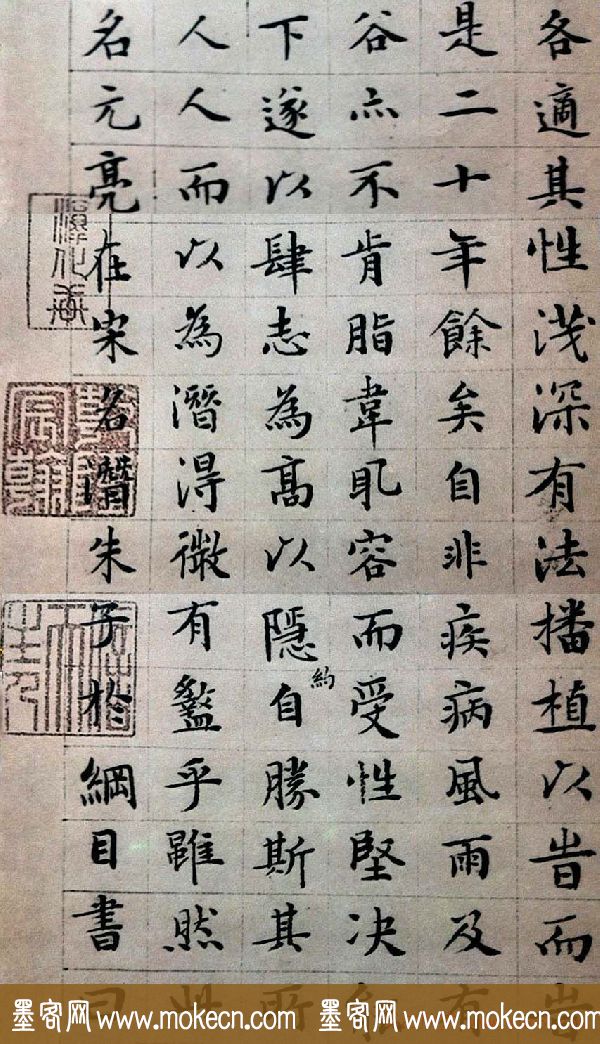 各適其性浅深有法播植以旹而
是二十年餘矣自非疾病風雨及有
谷亦不肯脂韋耴容而受性堅决
約
下遂以肆志為高以隱自勝斯其所
人人而以為潛得微有乎雖然
名元亮在宋名潛朱子於綱目書曰
墨客网 www.mokecn.com 墨客网 www.mokecn.com